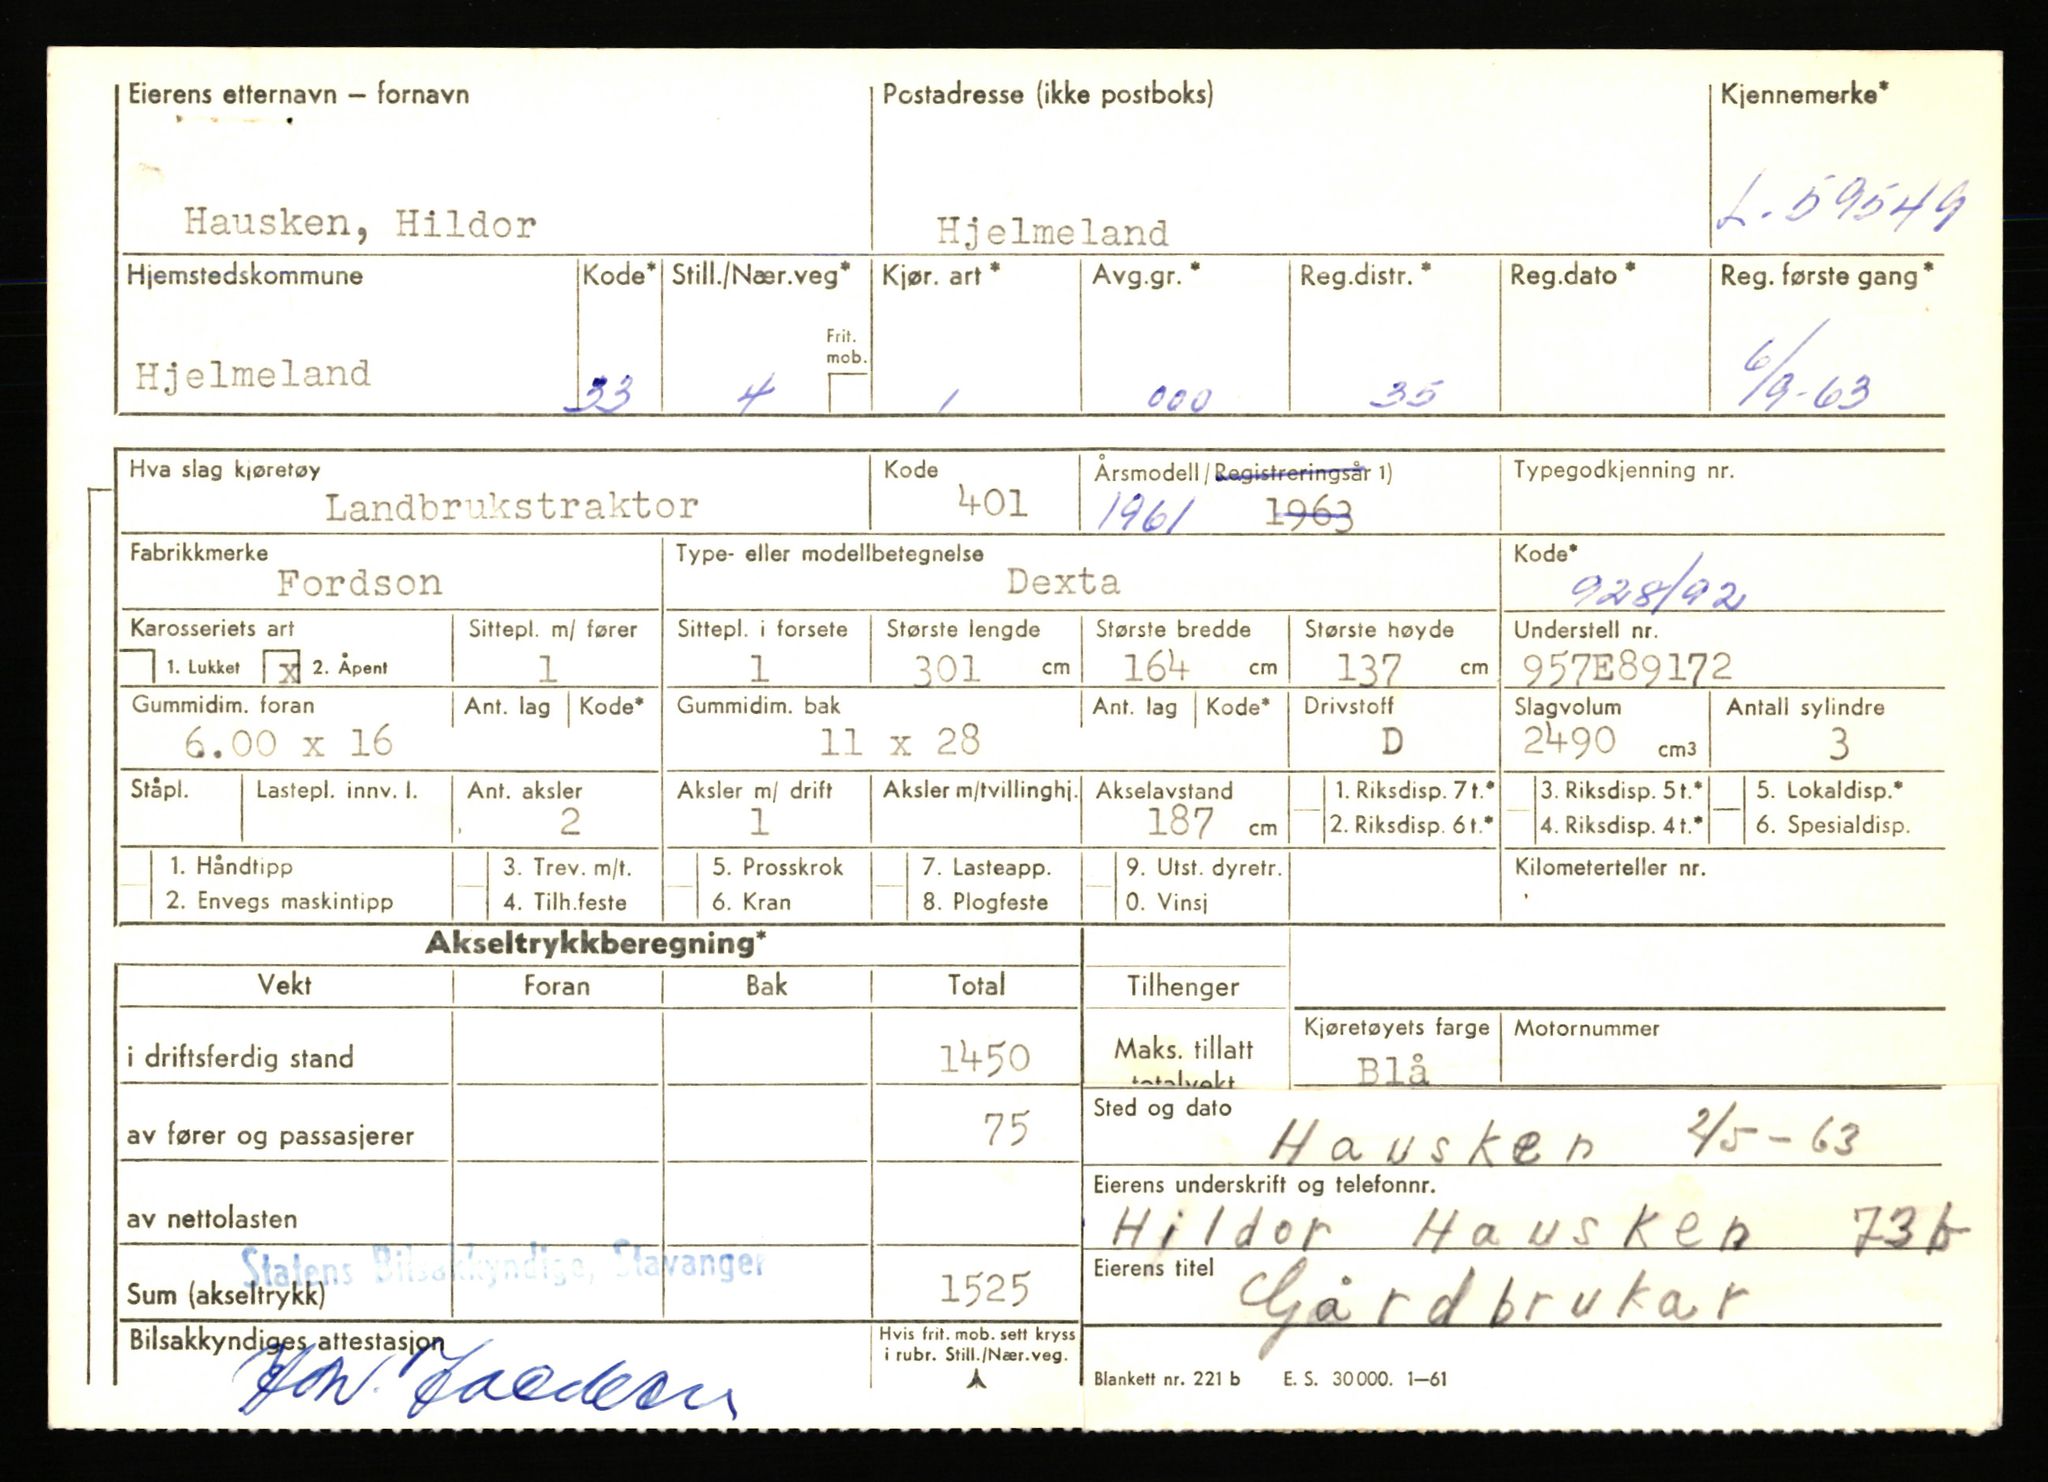 Eierens etternavn – fornavn Postadresse (ikke postboks) Kjennemerke*
Hausken, Hildor Hjelmeland L-59549
Hjemstedskommune Kode* Still./Nær.veg* Kjør. art* Avg.gr.* Reg.distr.* Reg.dato* Reg. første gang*
Frit. mob.
Hjelmeland 33 4 1 000 35 6/9-63
Hva slag kjøretøy Kode Årsmodell/Registreringsår 1) Typegodkjenning nr.
Landbrukstraktor 401 1961 1963
Fabrikkmerke Type- eller modellbetegnelse Kode*
Fordson Dexta 928/92
Karosseriets art Sittepl. m/ fører Sittepl. i forsete Største lengde Største bredde Største høyde Understell nr.
1. Lukket x 2. Åpent 1 1 301 cm 164 cm 137 cm 957E89172
Gummidim. foran Ant. lag Kode* Gummidim. bak Ant. lag Kode* Drivstoff Slagvolum Antall sylindre
6.00 x 16 11 x 28 D 2490 cm3 3
Ståpl. Lastepl. innv. l. Ant. aksler Aksler m/ drift Aksler m/tvillinghj. Akselavstand 1. Riksdisp. 7 t.* 3. Riksdisp. 5 t.* 5. Lokaldisp.*
2 1 187 cm 2. Riksdisp. 6 t.* 4. Riksdisp. 4 t.* 6. Spesialdisp.
1. Håndtipp 3. Trev. m/t. 5. Prosskrok 7. Lasteapp. 9. Utst. dyretr. Kilometerteller nr.
2. Envegs maskintipp 4. Tilh.feste 6. Kran 8. Plogfeste 0. Vinsj
Akseltrykkberegning*
Vekt Foran Bak Total Tilhenger
Kjøretøyets farge Motornummer
i driftsferdig stand 1450 Maks. tillatt Blå
totalvekt
Sted og dato
av fører og passasjerer 75 Hausken 2/5-63
Eierens underskrift og telefonnr.
av nettolasten Hildor Hausken 73b
Statens Bilsakkyndige, Stavanger
Eierens titel
Sum (akseltrykk) 1525 Gårdbrukar
Bilsakkyndiges attestasjon Hvis frit. mob. sett kryss
i rubr. Still./Nær.veg.
Blankett nr. 221 b E. S. 30 000. 1–61